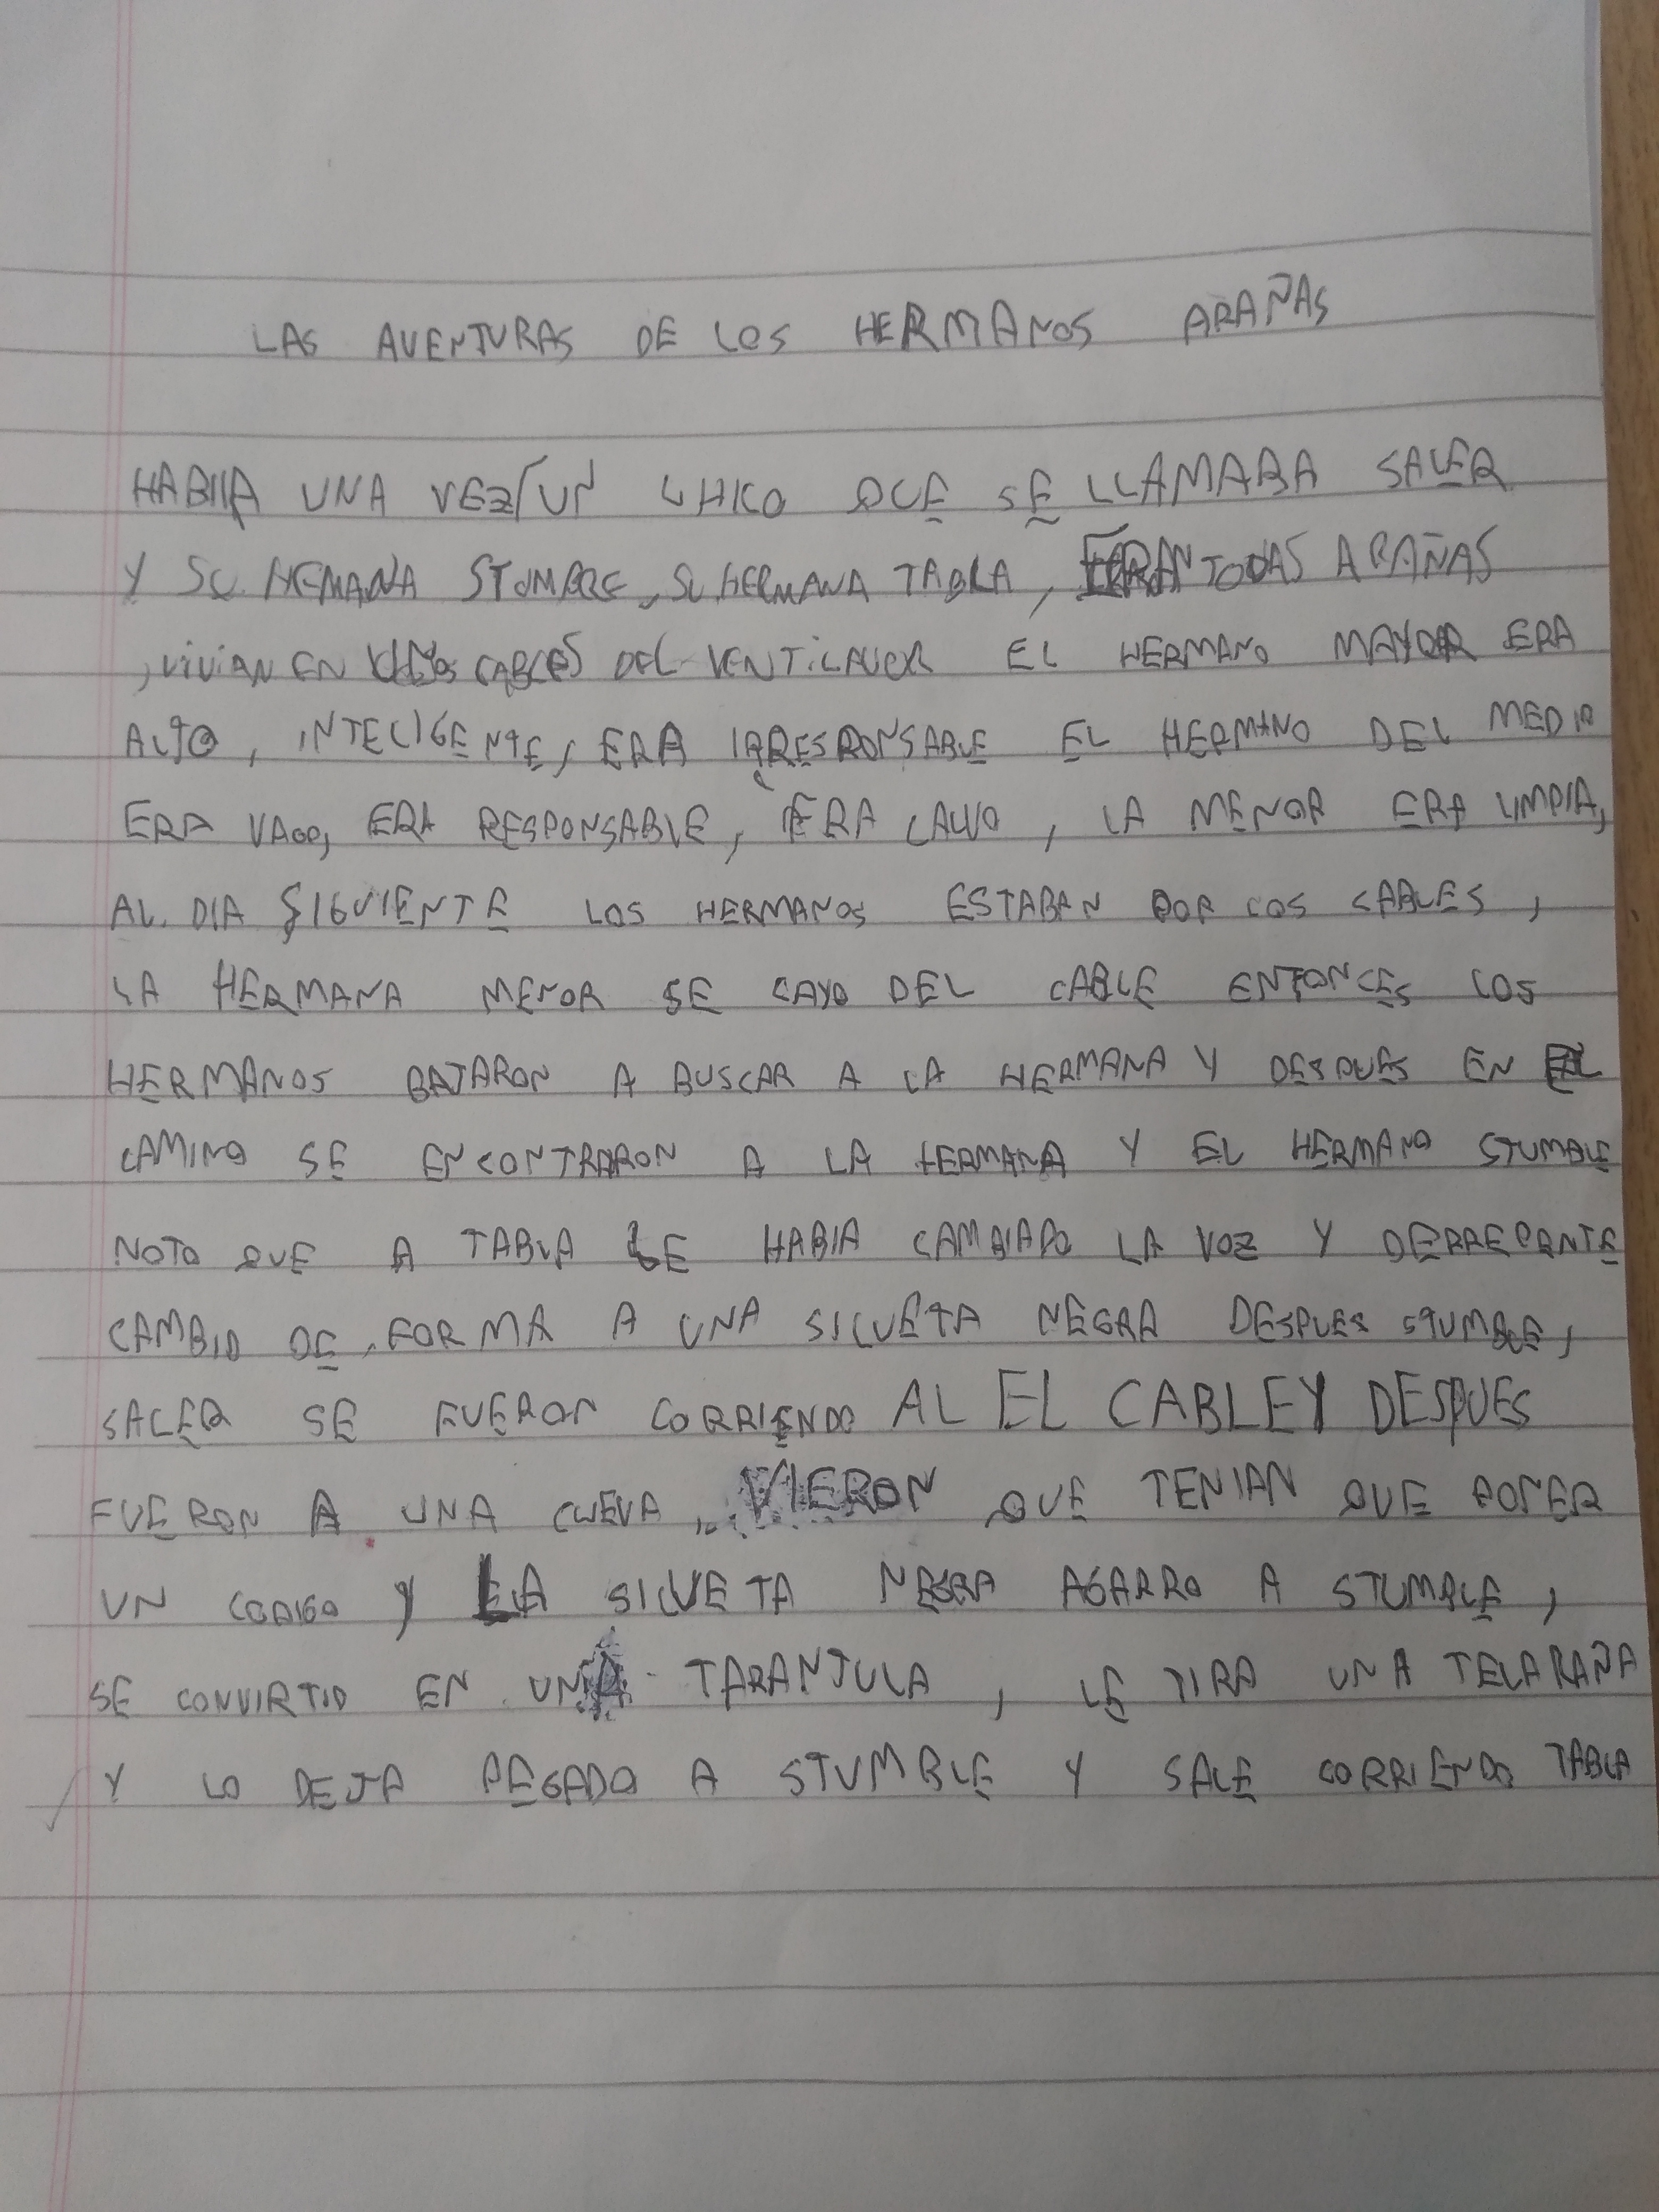 LAS AVENTURAS DE LOS HERMANOS ARAÑAS
HABIIA UNA VEZ UN CHICO QUE SE LLAMABA SALER
Y SU HEMANA STUMBLE, SU HERMANA TABLA, ERAN TODAS ARAÑAS
, VIVIAN EN CABLES DEL VENTILADOR EL HERMANO MAYOR ERA
ALTO, INTELIGENTE, ERA IRRESPONSABLE EL HERMANO DEL MEDIO
ERA VAGO, ERA RESPONSABLE, ERA CALVO, LA MENOR ERA LIMPIA,
AL DIA SIGUIENTE LOS HERMANOS ESTABAN POR LOS CABLES,
LA HERMANA MENOR SE CAYO DEL CABLE ENTONCES LOS
HERMANOS BAJARON A BUSCAR A LA HERMANA Y DESPUES EN EL
CAMINO SE ENCONTRARON A LA HERMANA Y EL HERMANO STUMBLE
NOTO QUE A TABLA LE HABIA CAMBIADO LA VOZ Y DERREPENTE
CAMBIO DE FORMA A UNA SILUETA NEGRA DESPUES STUMBLE,
SALER SE FUERON CORRIENDO AL EL CABLE Y DESPUES
FUERON A UNA CUEVA, VIERON QUE TENIAN QUE PONER
UN CODIGO Y LA SILUETA NEGRA AGARRO A STUMBLE,
SE CONVIRTIO EN UNA TARANTULA, LE TIRA UNA TELARAÑA
Y LO DEJA PEGADO A STUMBLE Y SALE CORRIENDO TABLA